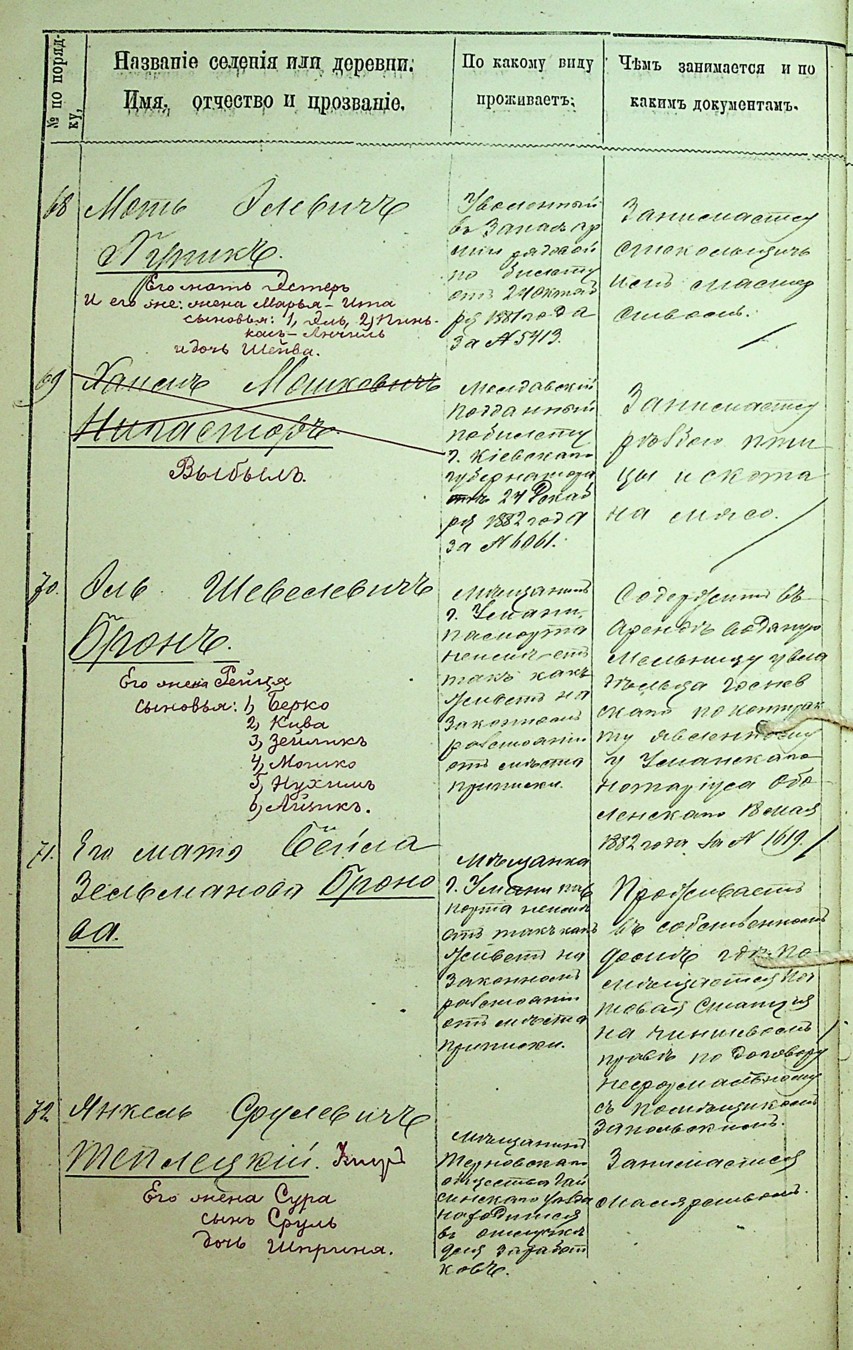 № по поряд-
ку,
Названіе селенія или деревни.
Имя, отчество и прозваніе.
По какому виду
проживаетъ.
Чѣмъ занимается и по
какимъ документамъ.
68
Моть Элевичъ
Пупикъ.
Его мать Эстеръ
И его же: жена Марья-Ита
сыновья: 1, Эль, 2, Пинь-
касъ-Анчиль
и дочь Шейва.
Уволенный
въ Запасъ ар
міи рядовой
по билету
отъ 24 Октяб
ря 1881 года
за № 5413.
Занимается
стекольщичь
имъ мастер
ствомъ.
69
Хаимъ Мошковичъ
Выбылъ.
Молдавскій
подданный
по билету
г. Кіевскаго
губернатора
отъ 24 Декаб
ря 1882 года
за № 6061.
Занимается
рѣзкою пти
цы и скота
на мясо.
70.
Эль Шевелевичъ
Бронъ.
Его жена Рейзя
сыновья: 1, Берко
2, Кива
3, Зейликъ
4, Мошко
5, Нухимъ
6, Айзикъ.
Мѣщанинъ
г. Умани,
паспорта
неимѣетъ
такъ какъ
живетъ на
законномъ
растояніи
отъ мѣста
приписки.
Содержитъ въ
арендѣ водяную
мельницу у вла
дѣльца
скаго по контрак
ту явленному
у Уманскаго
нотаріуса Обо
ленскаго 18 мая
1882 года за № 1619.
71.
Его мать Бейла
Зельманова Броно
ва.
Мѣщанка
г. Умани пас
порта неимѣ
етъ такъ какъ
живетъ на
законномъ
растояніи
отъ мѣста
приписки.
Проживаетъ
въ собственномъ
домѣ гдѣ по-
мѣщается поч
товая станція
на чиншевомъ
правѣ по договору
неформальному
съ помѣщикомъ
Запольскимъ.
72
Янкель Срулевичъ
Теплецкій.
Его жена Сура
сынъ Сруль
дочь Шпринца.
Мѣщанинъ
Терновскаго
общества Гай
синскаго уѣзда
находится
въ отлучкѣ
для заработ
ковъ.
Занимается
малярствомъ.